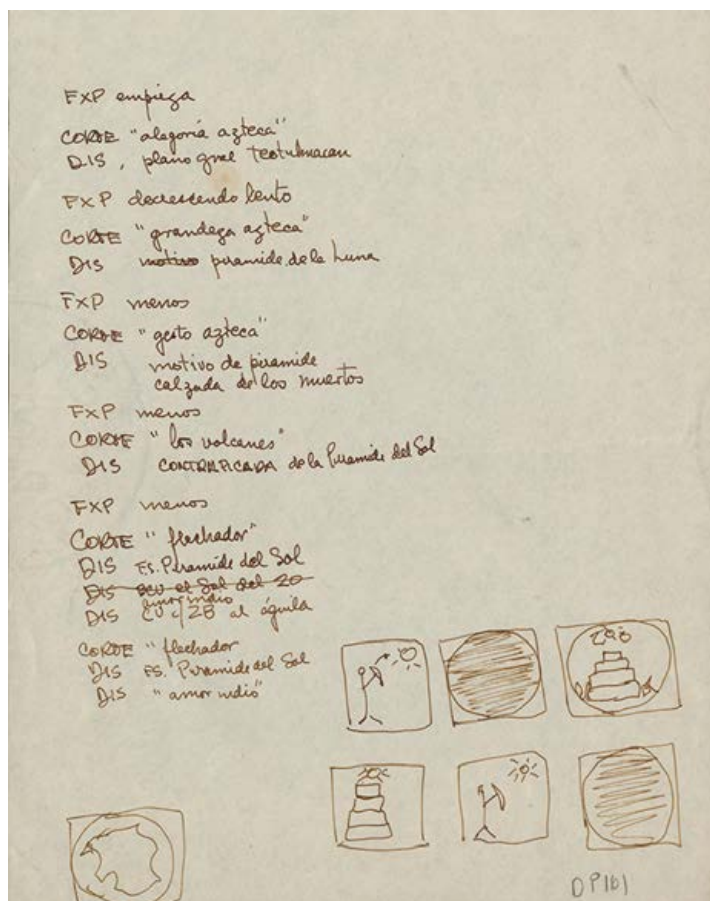 FXP empieza
CORTE "alegoría azteca"
DIS, plano gral Teotihuacan
FXP decrescendo lento
CORTE "grandeza azteca"
DIS motivo piramide de la Luna
FXP menos
CORTE "gesto azteca"
DIS motivo de piramide
calzada de los muertos
FXP menos
CORTE "los volcanes"
DIS CONTRAPICADA de la Piramide del Sol
FXP menos
CORTE "flechador"
DIS ES. Piramide del Sol
DIS el Sol del 20
amor indio
DIS CU c/ZB al águila
CORTE "flechador
DIS ES. Piramide del Sol
DIS "amor indio"
DP101